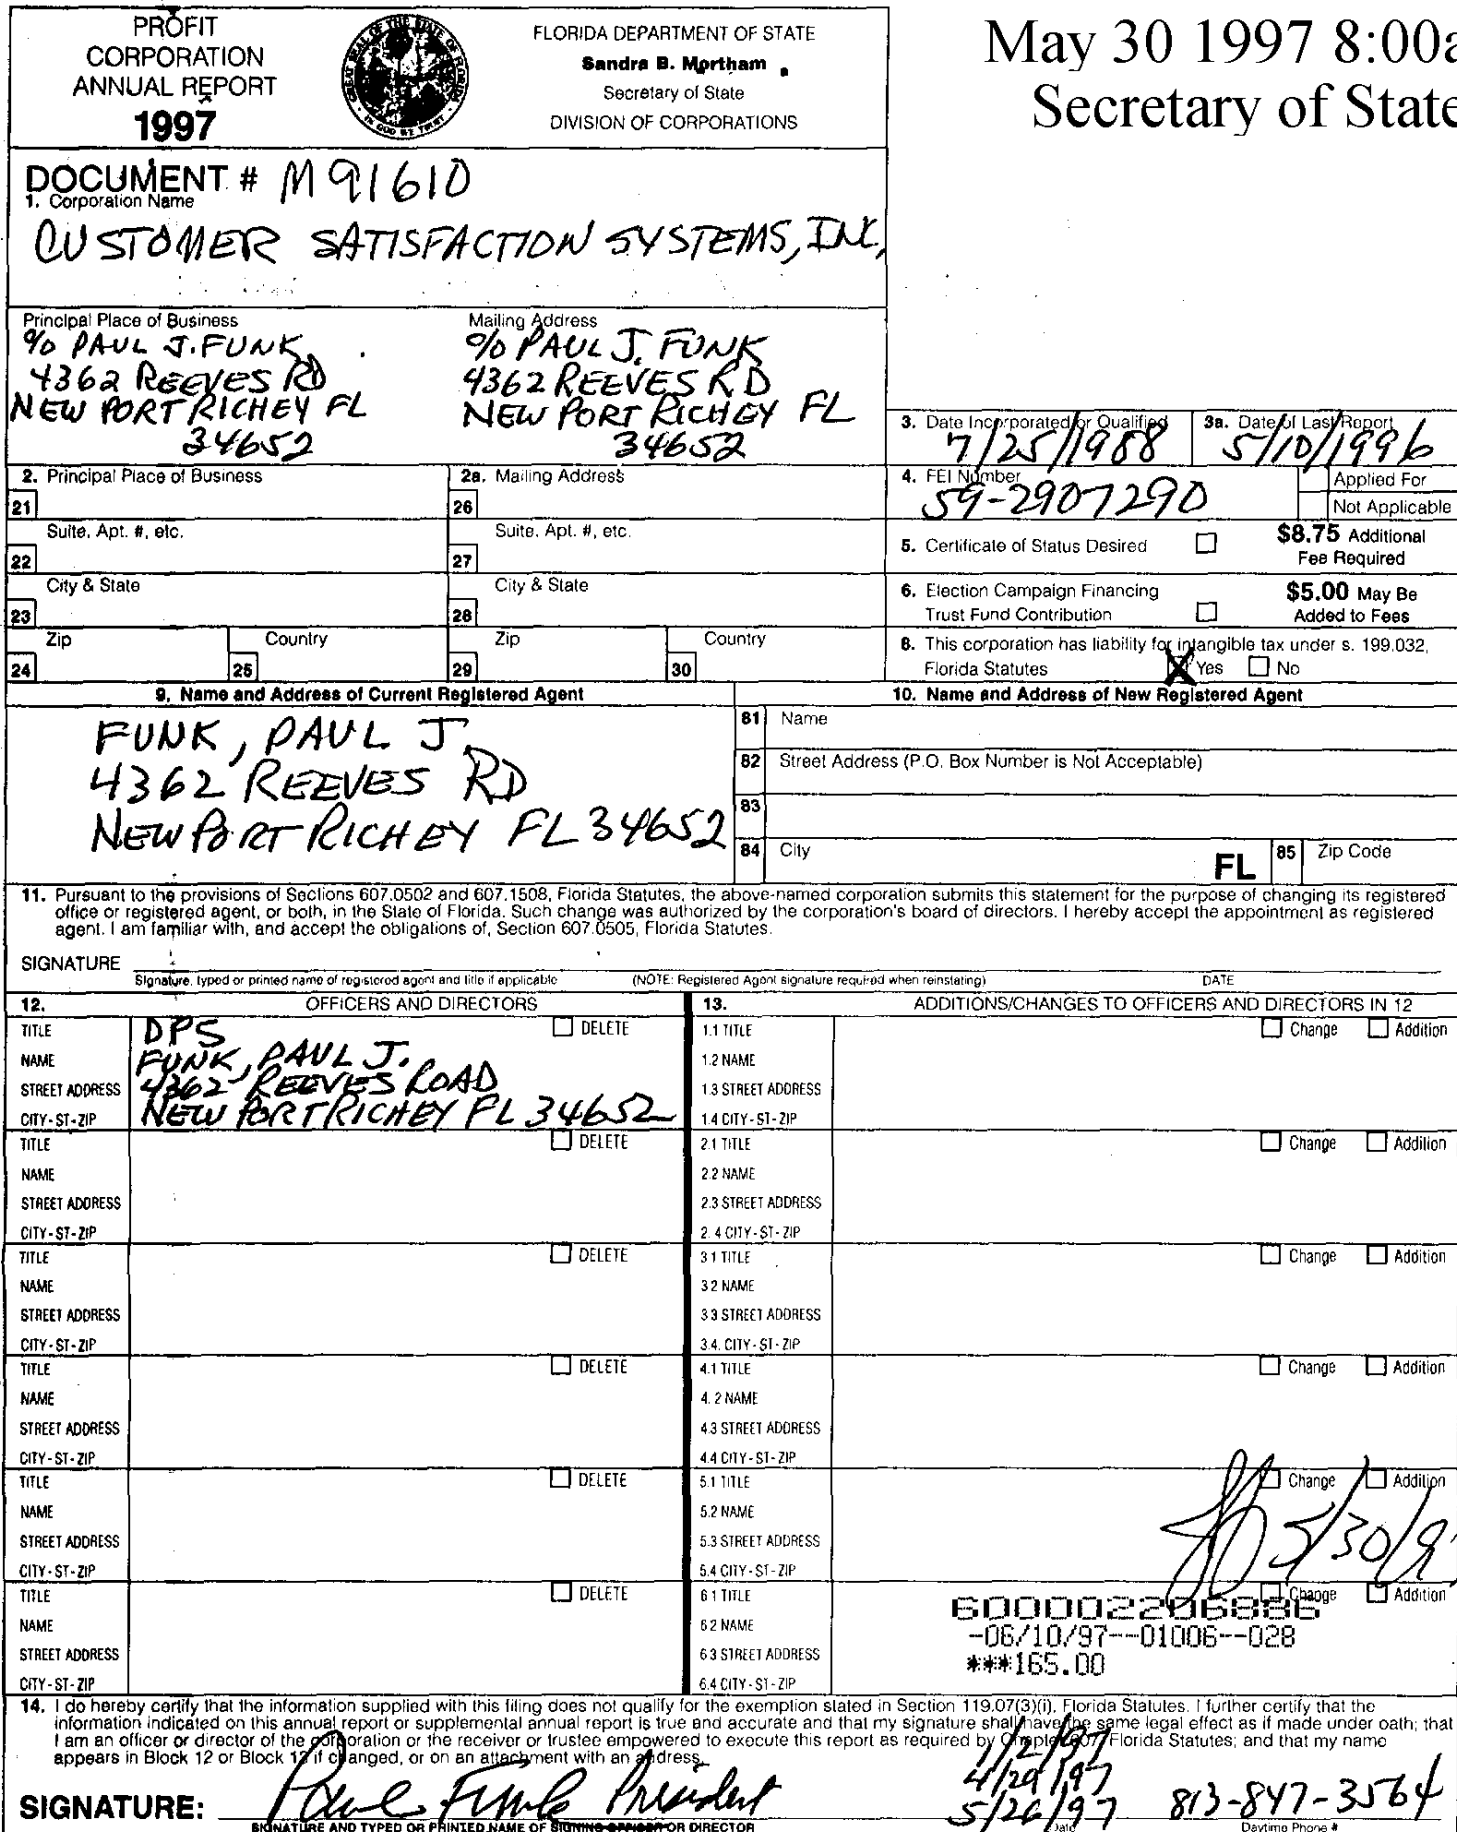 PROFIT
CORPORATION
ANNUAL REPORT
1997
FLORIDA DEPARTMENT OF STATE
Sandra B. Mortham
Secretary of State
DIVISION OF CORPORATIONS
May 30 1997 8:00a
Secretary of State
DOCUMENT # M91610
1. Corporation Name
CUSTOMER SATISFACTION SYSTEMS, INC,
Principal Place of Business
% PAUL J. FUNK
4362 REEVES RD
NEW PORT RICHEY FL
34652
Mailing Address
% PAUL J. FUNK
4362 REEVES RD
NEW PORT RICHEY FL
34652
3. Date Incorporated or Qualified
7/25/1988
3a. Date of Last Report
5/10/1996
2. Principal Place of Business
21
2a. Mailing Address
26
4. FEI Number
59-2907290
Applied For
Not Applicable
Suite, Apt. #, etc.
22
Suite, Apt. #, etc.
27
5. Certificate of Status Desired
$8.75 Additional
Fee Required
City & State
23
City & State
28
6. Election Campaign Financing
Trust Fund Contribution
$5.00 May Be
Added to Fees
Zip
24
Country
25
Zip
29
Country
30
8. This corporation has liability for intangible tax under s. 199.032,
Florida Statutes X Yes No
9. Name and Address of Current Registered Agent
FUNK, PAUL J.
4362 REEVES RD
NEW PORT RICHEY FL 34652
10. Name and Address of New Registered Agent
81 Name
82 Street Address (P.O. Box Number is Not Acceptable)
83
84 City
FL
85 Zip Code
11. Pursuant to the provisions of Sections 607.0502 and 607.1508, Florida Statutes, the above-named corporation submits this statement for the purpose of changing its registered
office or registered agent, or both, in the State of Florida. Such change was authorized by the corporation's board of directors. I hereby accept the appointment as registered
agent. I am familiar with, and accept the obligations of, Section 607.0505, Florida Statutes.
SIGNATURE
Signature, typed or printed name of registered agent and title if applicable
(NOTE: Registered Agent signature required when reinstating)
DATE
12. OFFICERS AND DIRECTORS
13. ADDITIONS/CHANGES TO OFFICERS AND DIRECTORS IN 12
TITLE DPS DELETE
NAME FUNK, PAUL J.
STREET ADDRESS 4362 REEVES ROAD
CITY-ST-ZIP NEW PORT RICHEY FL 34652
1.1 TITLE Change Addition
1.2 NAME
1.3 STREET ADDRESS
1.4 CITY-ST-ZIP
TITLE DELETE
NAME
STREET ADDRESS
CITY-ST-ZIP
2.1 TITLE Change Addition
2.2 NAME
2.3 STREET ADDRESS
2.4 CITY-ST-ZIP
TITLE DELETE
NAME
STREET ADDRESS
CITY-ST-ZIP
3.1 TITLE Change Addition
3.2 NAME
3.3 STREET ADDRESS
3.4. CITY-ST-ZIP
TITLE DELETE
NAME
STREET ADDRESS
CITY-ST-ZIP
4.1 TITLE Change Addition
4.2 NAME
4.3 STREET ADDRESS
4.4 CITY-ST-ZIP
TITLE DELETE
NAME
STREET ADDRESS
CITY-ST-ZIP
5.1 TITLE Change Addition
5.2 NAME
5.3 STREET ADDRESS
5.4 CITY-ST-ZIP
5/30/9
TITLE DELETE
NAME
STREET ADDRESS
CITY-ST-ZIP
6.1 TITLE Change Addition
6.2 NAME
6.3 STREET ADDRESS
6.4 CITY-ST-ZIP
600002206886
-06/10/97--01006--028
***165.00
14. I do hereby certify that the information supplied with this filing does not qualify for the exemption stated in Section 119.07(3)(i), Florida Statutes. I further certify that the
information indicated on this annual report or supplemental annual report is true and accurate and that my signature shall have the same legal effect as if made under oath; that
I am an officer or director of the corporation or the receiver or trustee empowered to execute this report as required by Chapter 607, Florida Statutes; and that my name
appears in Block 12 or Block 13 if changed, or on an attachment with an address.
1/2/97
4/29/97
5/26/97
SIGNATURE: Paul Funk President
813-847-3564
SIGNATURE AND TYPED OR PRINTED NAME OF SIGNING OFFICER OR DIRECTOR
Date
Daytime Phone #